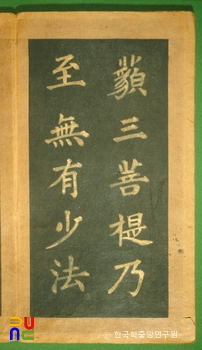 藐三菩提乃
至無有少法
한국학중앙연구원